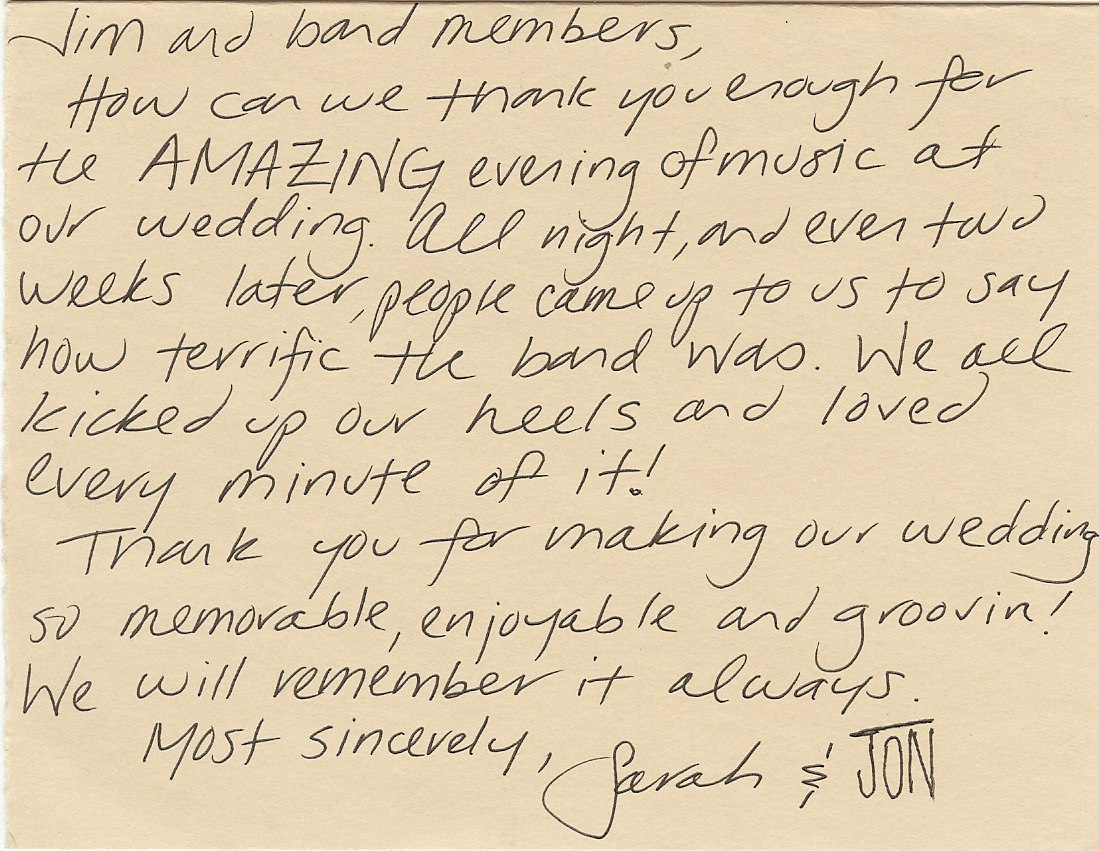 Jim and band members,
How can we thank you enough for
the AMAZING evening of music at
our wedding. All night, and even two
weeks later, people came up to us to say
how terrific the band was. We all
kicked up our heels and loved
every minute of it!
Thank you for making our wedding
so memorable, enjoyable and groovin!
We will remember it always.
Most sincerely, Sarah & JON